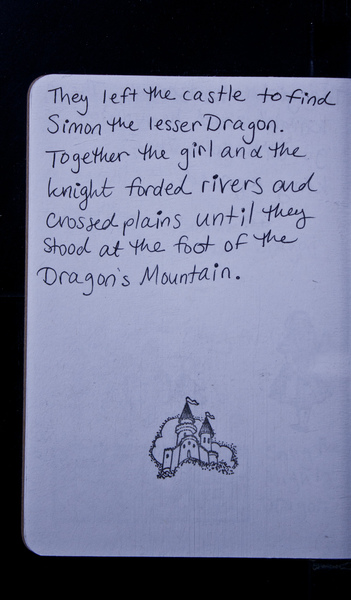 They left the castle to find
Simon the lesser Dragon.
Together the girl and the
knight forded rivers and
crossed plains until they
stood at the foot of the
Dragon's Mountain.